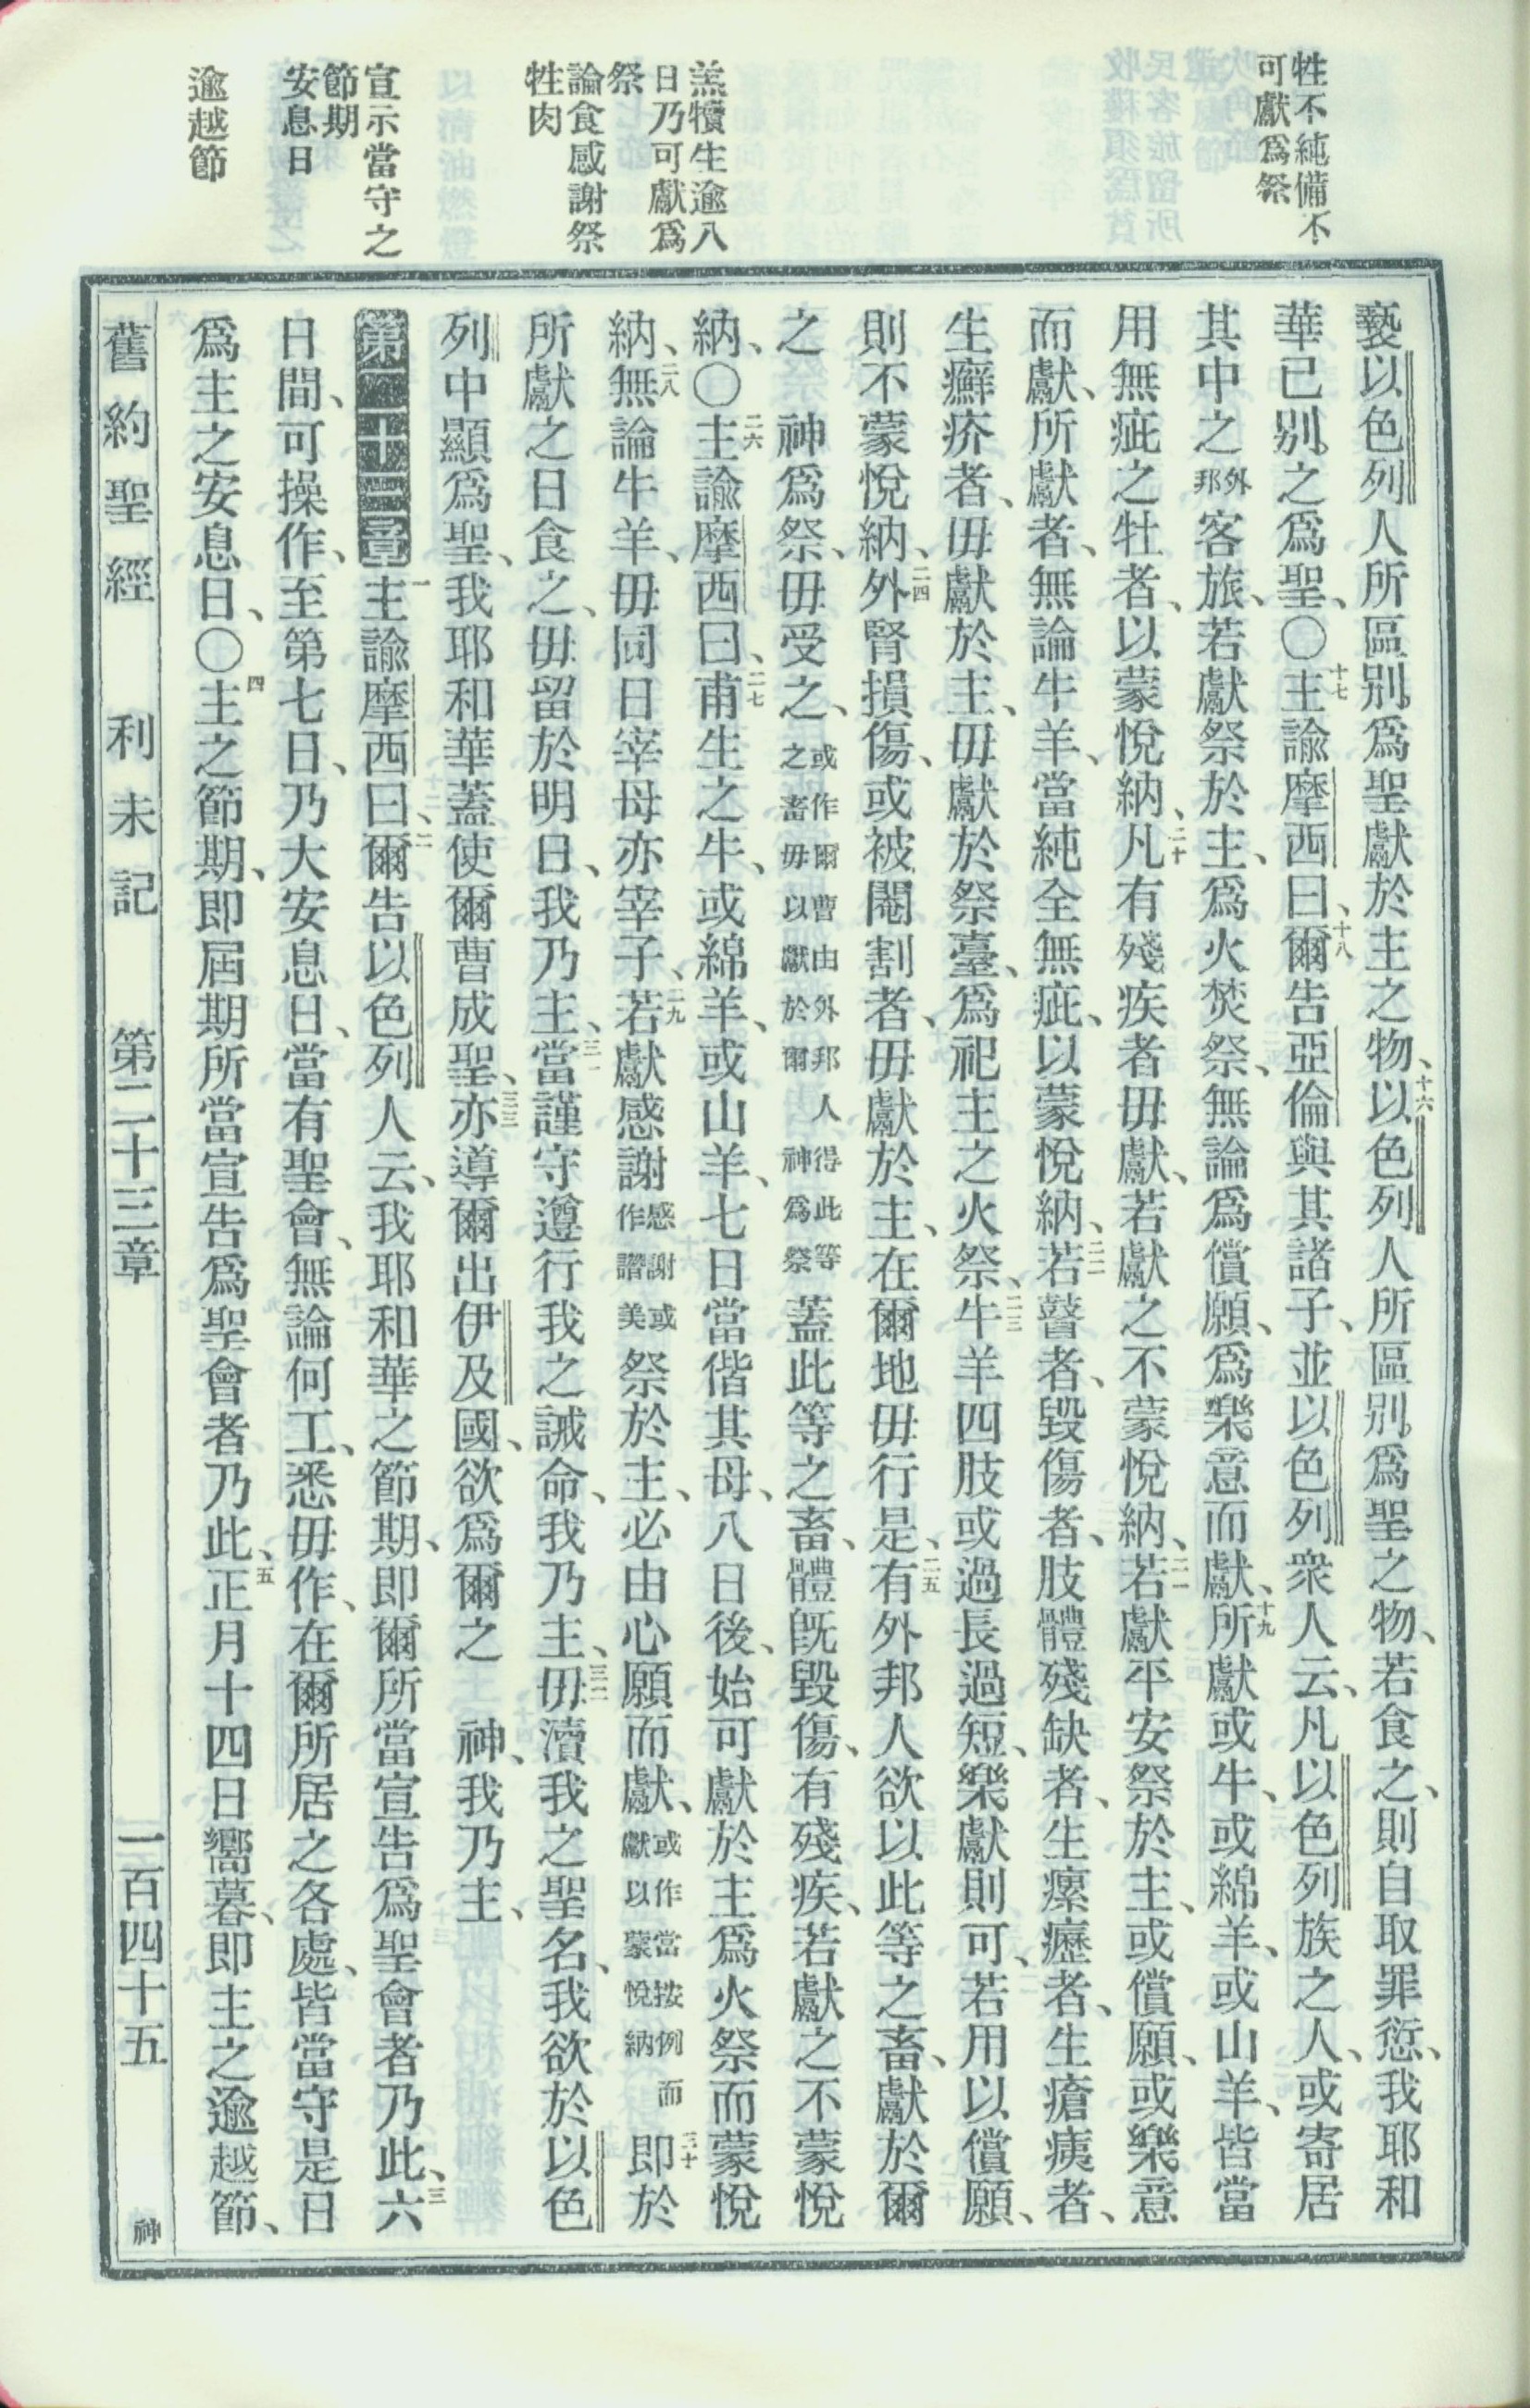 牲不純備不
可獻爲祭
羔犢生逾八
日乃可獻爲
祭
論食感謝祭
牲肉
宣示當守之
節期
安息日
逾越節
褻以色列人所區別爲聖獻於主之物、十六以色列人所區別爲聖之物、若食之、則自取罪愆、我耶和
華已別之爲聖、〇十七主諭摩西曰、十八爾告亞倫與其諸子、並以色列衆人云、凡以色列族之人、或寄居
其中之外邦客旅、若獻祭於主、爲火焚祭、無論爲償願、爲樂意而獻、十九所獻或牛、或綿羊、或山羊、皆當
用無疵之牡者、以蒙悅納、二十凡有殘疾者毋獻、若獻之不蒙悅納、二一若獻平安祭於主、或償願、或樂意
而獻、所獻者、無論牛羊、當純全無疵、以蒙悅納、二二若瞽者、毀傷者、肢體殘缺者、生瘰癧者、生瘡痍者、
生癬疥者、毋獻於主、毋獻於祭臺、爲祀主之火祭、二三牛羊四肢或過長過短、樂獻則可、若用以償願、
則不蒙悅納、二四外腎損傷、或被閹割者、毋獻於主、在爾地毋行是、二五有外邦人欲以此等之畜、獻於爾
之 神爲祭、毋受之、或作爾曹由外邦人得此等之畜毋以獻於爾 神爲祭蓋此等之畜、體旣毀傷、有殘疾、若獻之不蒙悅
納、〇二六主諭摩西曰、二七甫生之牛、或綿羊、或山羊、七日當偕其母、八日後、始可獻於主爲火祭而蒙悅
納、二八無論牛羊、毋同日宰母亦宰子、二九若獻感謝感謝或作讚美祭於主、必由心願而獻、或作當按例而獻以蒙悅納三十即於
所獻之日食之、毋留於明日、我乃主、三一當謹守遵行我之誡命、我乃主、三二毋瀆我之聖名、我欲於以色
列中顯爲聖、我耶和華蓋使爾曹成聖、三三亦導爾出伊及國、欲爲爾之 神、我乃主、
第二十三章一主諭摩西曰、二爾告以色列人云、我耶和華之節期、即爾所當宣告爲聖會者乃此、三六
日間、可操作、至第七日、乃大安息日、當有聖會、無論何工、悉毋作、在爾所居之各處、皆當守是日
爲主之安息日、〇四主之節期、即屆期所當宣告爲聖會者乃此、五正月十四日嚮暮、即主之逾越節、
舊約聖經 利未記 第二十三章 一百四十五 神